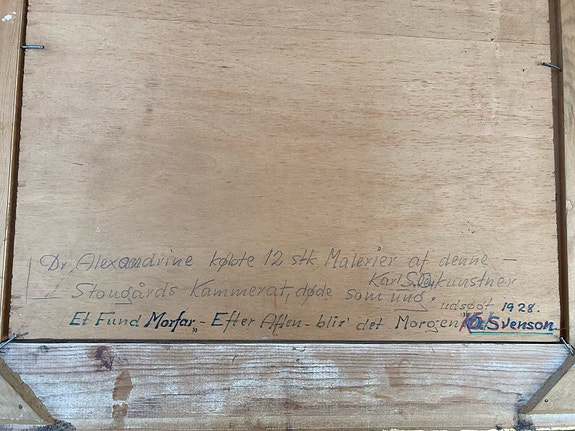 Dr, Alexandrine købte 12 stk Malerier af denne –
Karl S. kunstner
Stougårds Kammerat, døde som ung,"
udsøgt 1928.
Et Fund Morfar„ – Efter Aften – blir' det Morgen Svenson.